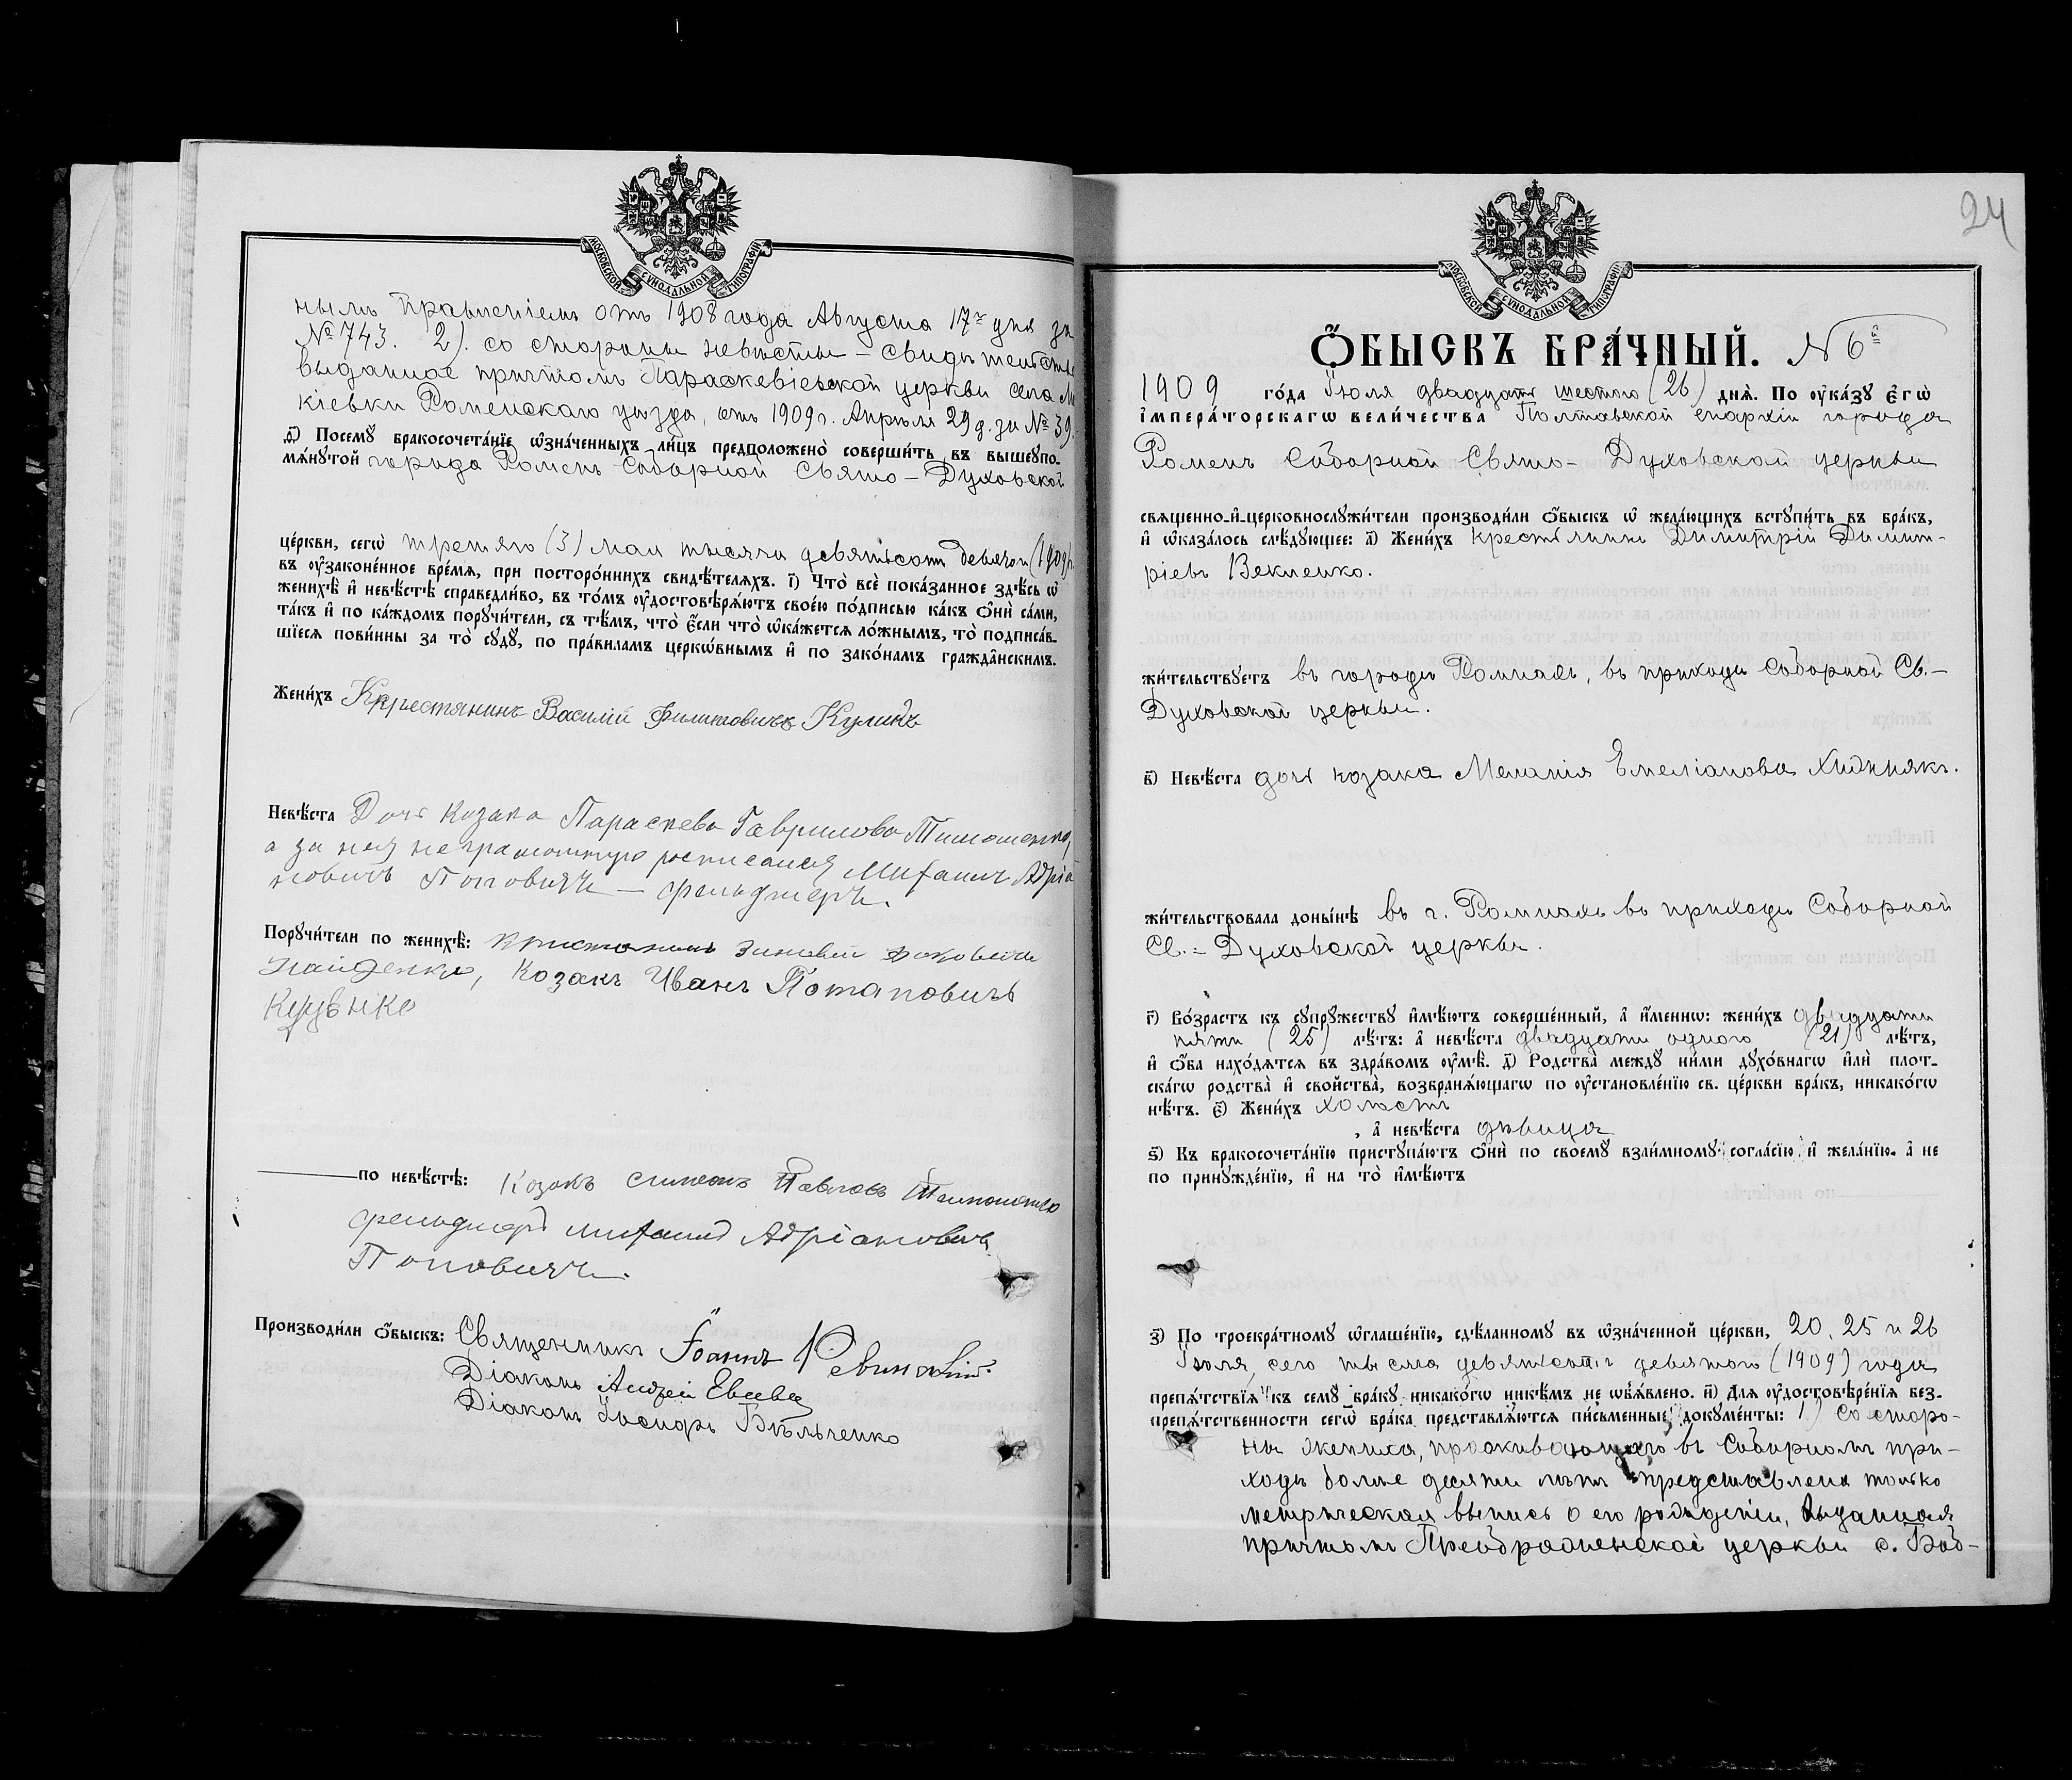 МОСКОВСКОЙ СѴНОДАЛЬНОЙ ТИПОГРАФІИ
нымъ правленіемъ отъ 1908 года Августа 17го дня за
№ 743. 2). со стороны невѣсты – свидѣтельство
выданное причтомъ Параскевіевской церкви села
кіевки Роменскаго уѣзда, отъ 1909 г. Апрѣля 29 д. за № 39.
Ѳ҃) Посемꙋ̀ бракосочета́нїе ѡ҆зна́ченныхъ ли́цъ предположено̀ соверши́ть въ вышеꙋпо-
мѧ́нꙋтой города Роменъ Соборной Свято-Духовской
це́ркви, сегѡ̀ третяго (3) мая тысяча девятьсотъ девятого (1909)
въ ᲂу҆зако́ненное вре́мѧ, при посторо́ннихъ свидѣ́телѧхъ. І҃) Что̀ всѐ пока́занное здѣ́сь ѡ҆
женихѣ̀ и҆ невѣ́стѣ справедли́во, въ то́мъ ᲂу҆достовѣрѧ́ютъ свое́ю по́дписью ка́къ ѻ҆нѝ са́ми,
та́къ и҆ по ка́ждомъ порꙋчи́тели, съ тѣ́мъ, что̀ є҆́сли что̀ ѡ҆ка́жетсѧ ло́жнымъ, то̀ подписа́в-
шїесѧ пови́нны за то̀ сꙋдꙋ̀, по пра́виламъ церко́внымъ и҆ по зако́намъ гражда̑нскимъ.
Жени́хъ Ккрестянинъ Василій Филиповичъ Кулидъ
Невѣ́ста Дочь Козака Параскева Гаврилова Тимошенко,
а за нея неграмотную росписался Михаилъ Адріа
новичъ Поповичъ – фельдшеръ.
Порꙋчи́тели по женихѣ̀: Зиновій
Найденко, Козакъ Иванъ Потаповичъ
по невѣ́стѣ: Козакъ Симеонъ Павловъ Тимошенко
фельдшеръ Михаилъ Адріановичъ
Поповичъ.
Производи́ли ѻ҆́быскъ: Священникъ Іоаннъ
Діаконъ Андрей
Діаконъ Іосифъ Бѣльченко
24
МОСКОВСКОЙ СѴНОДАЛЬНОЙ ТИПОГРАФІИ
Ѻ҆́БЫСКЪ БРА́ЧНЫЙ. № 6й
1909 го́да Іюля двадцать шестого (26) днѧ̀. По ᲂу҆ка́зꙋ Є҆гѡ̀
і҆мпера́торскагѡ вели́чества Полтавской епархіи города
Роменъ Соборной Свято-Духовской церкви
свѧщенно-и҆-церковнослꙋжи́тели производи́ли ѻ҆́быскъ ѡ҆ жела́ющихъ встꙋпи́ть въ бра́къ,
и҆ ѡ҆каза́лось слѣ́дꙋющее: А҃) Жени́хъ крестьянинъ Димитрій Димит-
ріевъ Векленко.
жи́тельствꙋетъ въ городѣ Ромнахъ, въ приходѣ Соборной Св.-
Духовской церкви.
В҃) Невѣ́ста дочь козака Меланія Емеліанова Хидинякъ.
жи́тельствовала доны́нѣ въ г. Ромнахъ въ приходѣ Соборной
Св.-Духовской церкви.
Г҃) Во́зрастъ къ сꙋпрꙋ́жествꙋ и҆мѣ́ютъ соверше́нный, а҆ и҆́менно: жени́хъ двадцати
пяти (25) лѣ́тъ: а҆ невѣ́ста двадцати одного (21) лѣ́тъ,
и҆ ѻ҆́ба нахо́дѧтсѧ въ здра́вомъ ᲂу҆мѣ̀. Д҃) Родства̀ междꙋ ни́ми дꙋхо́внагѡ и҆лѝ плот-
ска́гѡ родства̀ и҆ свойства̀, возбранѧ́ющагѡ по ᲂу҆становле́нїю св. це́ркви бра́къ, никако́гѡ
нѣ́тъ. Є҃) Жени́хъ холостъ
, а҆ невѣ́ста дѣвица
Ѕ҃) Къ бракосочета́нїю пристꙋпа́ютъ ѻ҆нѝ по своемꙋ̀ взаи́мномꙋ согла́сїю и҆ жела́нїю, а҆ не
по принꙋжде́нїю, и҆ на то̀ и҆мѣ́ютъ
З҃) По троекра́тномꙋ ѡ҆глаше́нїю, сдѣ́ланномꙋ въ ѡ҆зна́ченной це́ркви, 20, 25 и 26
Іюля сего тысяча девятьсотъ девятого (1909) года
препѧ́тствїѧ къ семꙋ̀ бра́кꙋ никако́гѡ никѣ́мъ не ѡ҆б̾ѧ́влено. И҃) Длѧ ᲂу҆достовѣре́нїѧ без-
препѧ́тственности сегѡ̀ бра́ка представлѧ́ютсѧ пи́сьменные докꙋме́нты: 1) Со сторо-
ны жениха, проживающаго въ Соборномъ при-
ходѣ болѣе десяти лѣтъ представлена только
метрическая выпись о его рожденіи, выданная
причтомъ Преображенской церкви с. Боб-